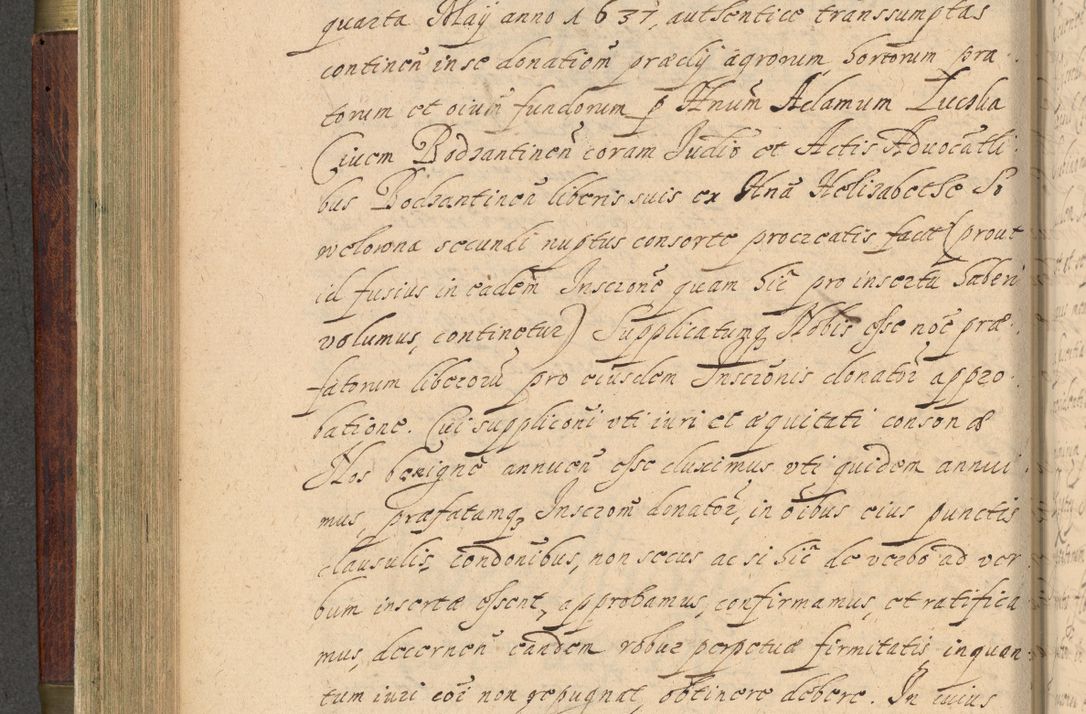 quarta Maij anno 1637, authentice transsumptas
continen̄ in se donatiōm prædij agrorum hortorum pra-
torum et oiūm fundorum p Hnūm Adamum Lucsba
Ciuem Bodzantinen̄ coram Judio et Actis Aduocāli-
bus Bodzantinen̄ liberis suis ex Hnā Helisabethe Si-
welowna secundi nuptus consorte procreatis factā (prout
id fusius in eadēm Inscronē quam hic̄ pro insertā haberi
volumus, continetur) Supplicatumq Nobis esse noē præ-
fatorum liberorū pro eiusdem Inscrōnis donatoē appro-
batione. Cui supplicōni vti iuri et æquitati consonæ
Nos benignē annuen̄ esse duximus vti quidem annui-
mus, præfatamq Inscrom donatoē, in oībus eius punctis
clausulis, condonībus, non secus ac si hic̄ de verbo ad ver
bum insertæ essent, approbamus, confirmamus, et ratifica
mus, decernen̄ eandem robur perpetuæ firmitatis inquan
tum iuri coī non repugnat, obtinere debere. In cuius